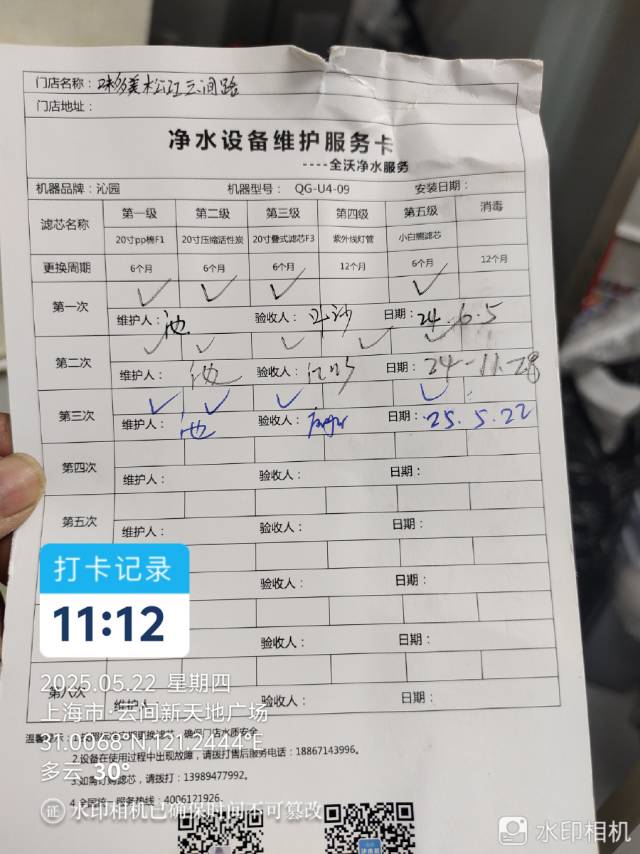 门店名称：味多美松江云间路
门店地址：
净水设备维护服务卡
----全沃净水服务
机器品牌：沁园 机器型号： QG-U4-09 安装日期：
滤芯名称 第一级 第二级 第三级 第四级 第五级 消毒
20寸pp棉F1 20寸压缩活性炭 20寸叠式滤芯F3 紫外线灯管 小白鲸滤芯
更换周期 6个月 6个月 6个月 12个月 6个月 12个月
第一次 ✓ ✓ ✓ ✓
维护人：池 验收人： 日期：24.6.5
第二次 ✓ ✓ ✓ ✓ ✓
维护人：池 验收人： 日期：24-11.28
第三次 ✓ ✓ ✓ ✓
维护人：池 验收人： 日期：25.5.22
第四次
维护人： 验收人： 日期：
第五次
维护人： 验收人： 日期：
打卡记录
11:12
验收人： 日期：
验收人： 日期：
2025.05.22 星期四
第八次
维护人： 验收人： 日期：
上海市·云间新天地广场
温馨提示：
确保门店水质安全
31.0068°N,121.2444°E
2.设备在使用过程中出现故障，请拨打售后服务电话：18867143996。
多云 30°
3.如需订购滤芯，请拨打：13989477992。
4.全国统一服务热线：4006121926.
证 水印相机已确保时间不可篡改
水印相机